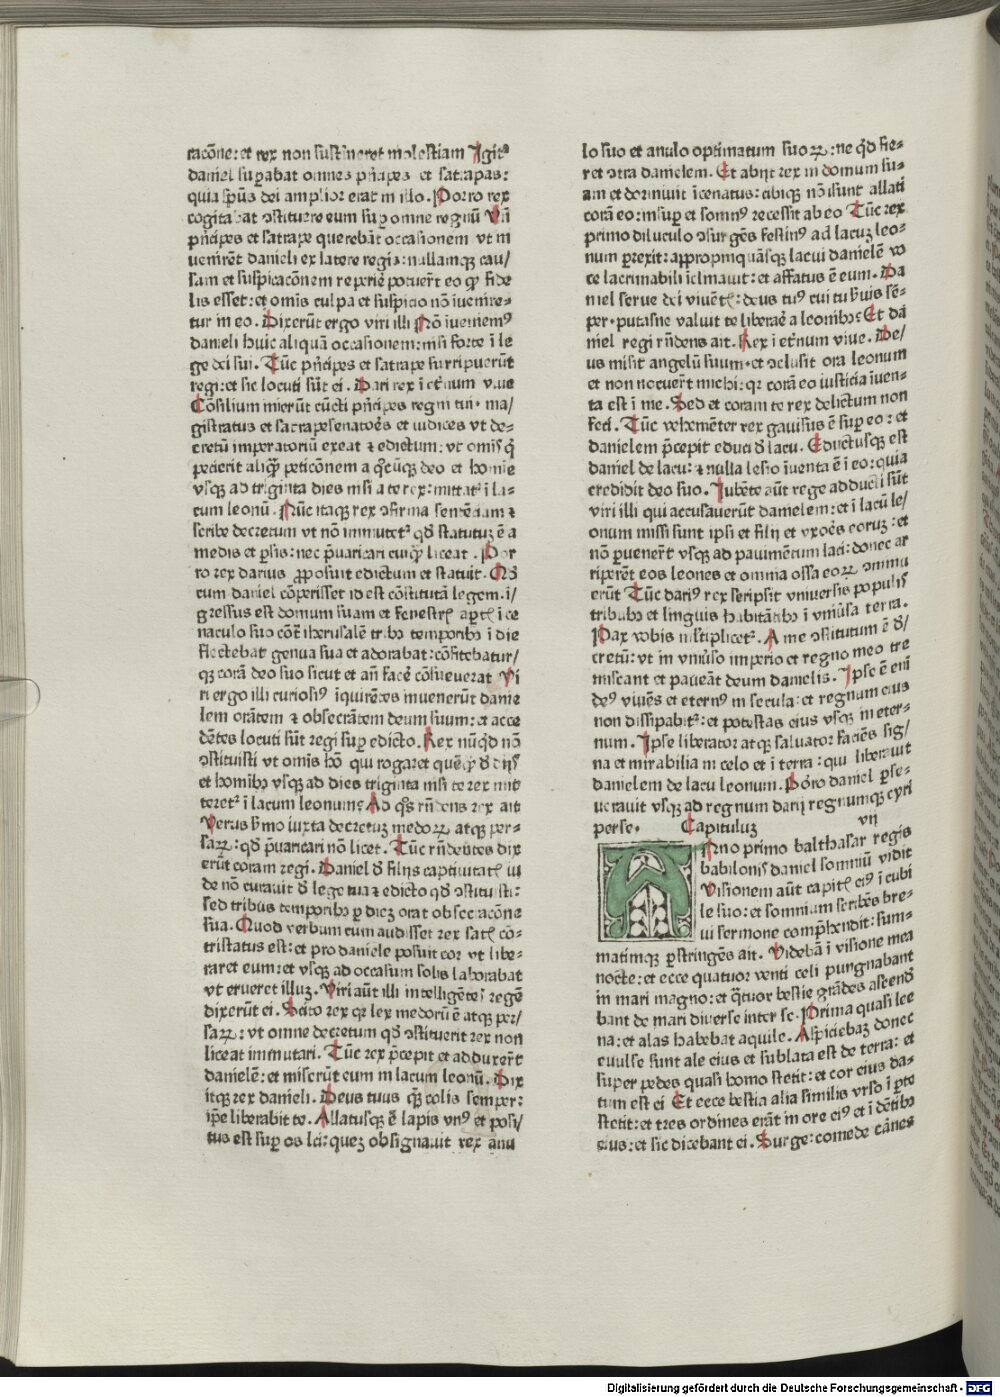 racōne: et rex non sustineret molestiam Igitᷣ
daniel suꝑabat omnes pͥncipes et satrapas:
quia spūs dei amplior erat in illo. Porro rex
cogitabat ↄstituere eum suꝑ omne regnū Vn̄
pͥncipes et satrape querebāt occasionem vt in
uenirēt danieli ex latere regis: nullamqꝫ cau/
sam et suspicacōnem reperire potuerūt eo ꝙ fide
lis esset: et omīs culpa et suspicio nō īuenire⸗
tur in eo. Dixerūt ergo viri illi Nō īueniemꝰ
danieli huic aliquā occasionem: nisi forte ī le
ge dei sui. Tūc pͥncipes et satrape surripuerūt
regi: et sic locuti sūt ei. Dari rex ī et̄num viue
Cōsilium inierūt cūcti pͥncipes regni tui· ma/
gistratus et satrape senatores et iudices vt de⸗
cretū imperatoriū exeat ⁊ edictum: vt omīs q̄
petierit aliqꝫ peticōnem a qͦcūqꝫ deo et homīe
vsqꝫ ad triginta dies nisi a te rex: mittatᷣ ī la⸗
cum leonū. Nūc itaqꝫ rex ↄfirma sentēciam ⁊
scribe decretum vt nō immutetᷣ qď statutuꝫ ē a
medis et ꝑsis: nec p̄uaricari cuiqꝫ liceat. Por
ro rex darius ꝓposuit edictum et statuit. Qď
cum daniel cōperisset id est cōstitutā legem. ī/
gressus est domum suam et fenestrꝭ apertꝭ ī ce
naculo suo cōt̄ iherusalē tribꝫ temporibꝫ ī die
flectebat genua sua et adorabat: cōfitebatur/
qꝫ corā deo suo sicut et an̄ facē cōsueuerat Vi
ri ergo illi curiosiꝰ īquirētes inuenerūt danie
lem orātem ⁊ obsecrātem deum suum: et acce
dētes locuti sūt regi suꝑ edicto. Rex nūqͥd nō
ↄstituisti vt omīs hō qui rogaret quēqꝫ ď dijs
et homībꝫ vsqꝫ ad dies triginta nisi te rex mit
teretᷣ ī lacum leonum? Ad qͦs rn̄dens rex ait
Verus ẜmo iuxta decretuꝫ medoꝝ atqꝫ per⸗
saꝝ: qď p̄uaricari nō licet. Tūc rn̄dētes dix
erūt coram regi. Daniel ď filijs captiuitatꝭ iu
de nō curauit ď lege tua ⁊ edicto qď ↄstituisti:
sed tribus temporibꝫ ꝑ dieꝫ orat obsecracōne
sua. Quod verbum cum audisset rex satꝭ cō⸗
tristatus est: et pro daniele posuit cor vt libe⸗
raret eum: et vsqꝫ ad occasum solis laborabat
vt erueret illuꝫ. Viri aūt illi intelligētes regē
dixerūt ei. Scito rex qꝛ lex medorū ē atqꝫ per/
saꝝ: vt omne decretum qď ↄstituerit rex non
liceat immutari. Tūc rex p̄cepit et adduxer̄t
danielē: et miserūt eum in lacum leonū. Dix
itqꝫ rex danieli. Deus tuus quē colis semper:
ip̄e liberabit te. Allatusqꝫ ē lapis vnꝰ et posi/
tus est suꝑ os laci: queꝫ obsignauit rex anu
lo suo et anulo optimatum suoꝝ: ne qͥd fie⸗
ret ↄtra danielem. Et abijt rex in domum su⸗
am et dormiuit īcenatus: cibiqꝫ nō sunt allati
corā eo: insuꝑ et somnꝰ recessit ab eo Tūc rex
primo diluculo ↄsurgēs festinꝰ ad lacuꝫ leo⸗
num ꝑrexit: appropinquāsqꝫ lacui danielē vo
ce lacrimabili īclmauit: et affatus ē eum. Da
niel serue dei viuētꝭ: deus tuꝰ cui tu ẜuis sē⸗
per· putasne valuit te liberare a leonibꝫ? Et da
niel regi rn̄dens ait. Rex ī et̄num viue. De/
us misit angelū suum· et ↄclusit ora leonum
et non nocuer̄t michi: qꝛ corā eo iusticia īuen⸗
ta est ī me. Sed et coram te rex delictum non
feci. Tūc vehemēter rex gauisus ē suꝑ eo: et
danielem p̄cepit educi ď lacu. Eductusqꝫ est
daniel de lacu: ⁊ nulla lesio īuenta ē ī eo: quia
credidit deo suo. Iubēte aūt rege adducti sūt
viri illi qui accusauerūt danielem: et ī lacū le/
onum missi sunt ipsi et filij et vxores eoruꝫ: et
nō ꝑuener̄t vsqꝫ ad pauimētum laci: donec ar
riperēt eos leones et omnia ossa eoꝝ ↄminu
erūt Tūc dariꝰ rex scripsit vniuersis populis
tribubꝫ et linguis habitātibꝫ ī vniūsa terra.
Pax vobis mltiplicetᷣ. A me ↄstitutum ē ď/
cretū: vt in vniūso imperio et regno meo tre
miscant et paueāt deum danielis. Ipse ē eni
deꝰ viuēs et eternꝰ in secula: et regnum eius
non dissipabitᷣ: et potestas eius vsqꝫ in eter⸗
num. Ipse liberator atqꝫ saluator faciēs sig/
na et mirabilia in celo et ī terra: qui liberauit
danielem de lacu leonum. Porro daniel ꝑse⸗
uerauit vsqꝫ ad regnum darij regnumqꝫ cyri
perse· Capituluꝫ vij
ANno primo balthasar regis
babilonis daniel somniū vidit
Visionem aūt capitꝭ eiꝰ ī cubi
le suo: et somnium scribēs bre⸗
ui sermone comp̄hendit: sum⸗
matimqꝫ ꝑstringēs ait. Videbā ī visione mea
nocte: et ecce quatuor venti celi pungnabant
in mari magno: et qͣtuor bestie grādes ascend
bant de mari diuerse inter se. Prima quasi lee
na: et alas habebat aquile. Aspiciebaꝫ donec
euulse sunt ale eius et sublata est de terra: et
super pedes quasi homo stetit: et cor eius da⸗
tum est ei Et ecce bestia alia similis vrso ī ꝑte
stetit: et tres ordines erāt in ore eiꝰ et ī dētibꝫ
eius: et sic dicebant ei. Surge: comede cānes
Digitalisierung gefördert durch die Deutsche Forschungsgemeinschaft - DFG